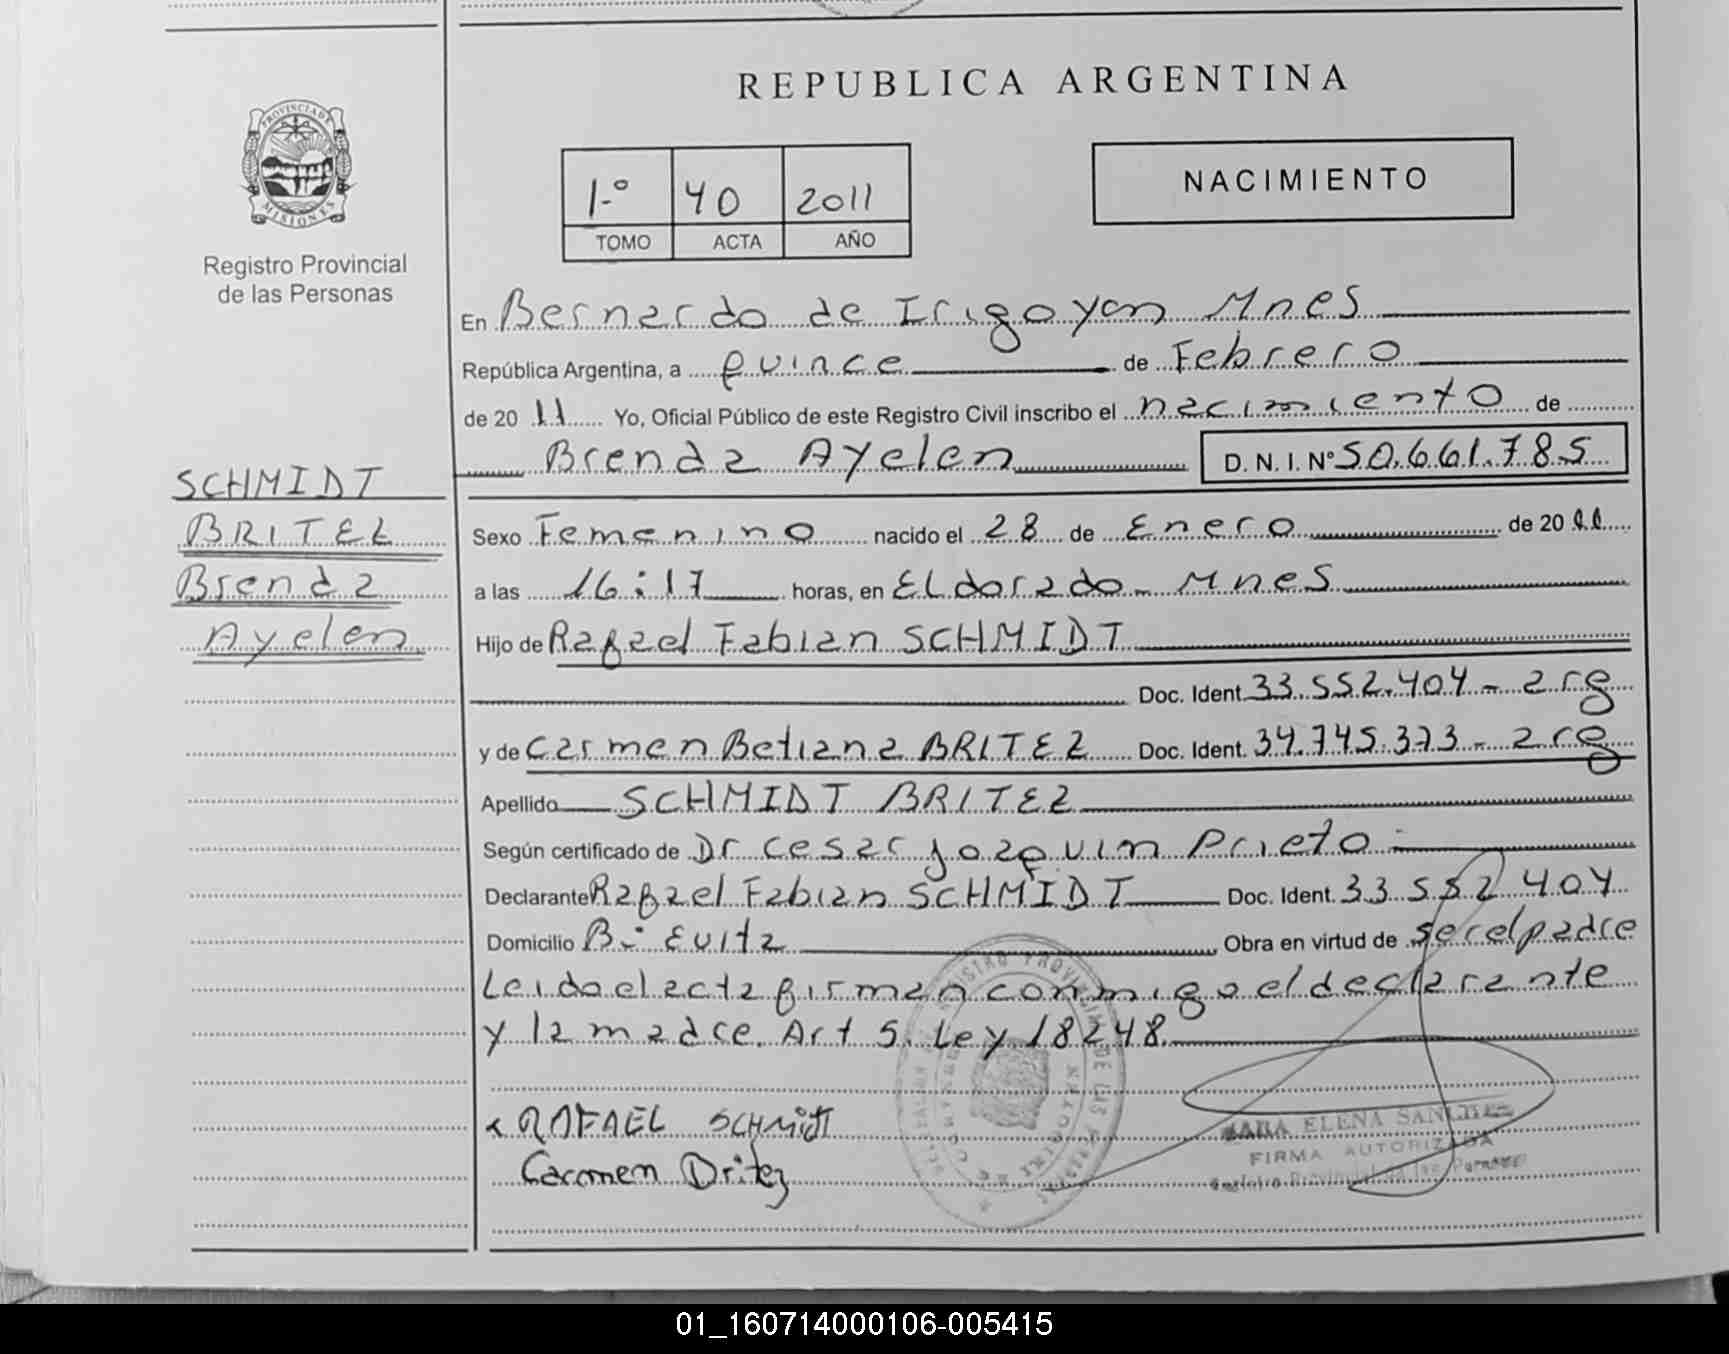 REPUBLICA ARGENTINA
PROVINCIA DE
MISIONES
Registro Provincial
de las Personas
1.º 40 2011
TOMO ACTA AÑO
NACIMIENTO
En Bernardo de Irigoyen Mnes
República Argentina, a quince de Febrero
de 2011 Yo, Oficial Público de este Registro Civil inscribo el nacimiento de
Brenda Ayelen D.N.I. Nº 50.661.785
SCHMIDT
BRITEZ
Brenda
Ayelen
Sexo Femenino nacido el 28 de Enero de 2011
a las 16:17 horas, en ELdorado - Mnes
Hijo de Rafael Fabian SCHMIDT
Doc. Ident. 33.552.404 - arg
y de Carmen Betiana BRITEZ Doc. Ident. 34.745.373 - arg
Apellido SCHMIDT BRITEZ
Según certificado de Dr Cesar Joaquin Prieto
Declarante Rafael Fabian SCHMIDT Doc. Ident. 33 552 404
Domicilio Bº Evita Obra en virtud de ser el padre
Leida el acta firman conmigo el declarante
y la madre. Art 5. Ley 18248.
RAFAEL SCHMidt
Carmen Britez
SARA ELENA SANCHEZ
FIRMA AUTORIZADA
Registro Provincial de las Personas
01_160714000106-005415